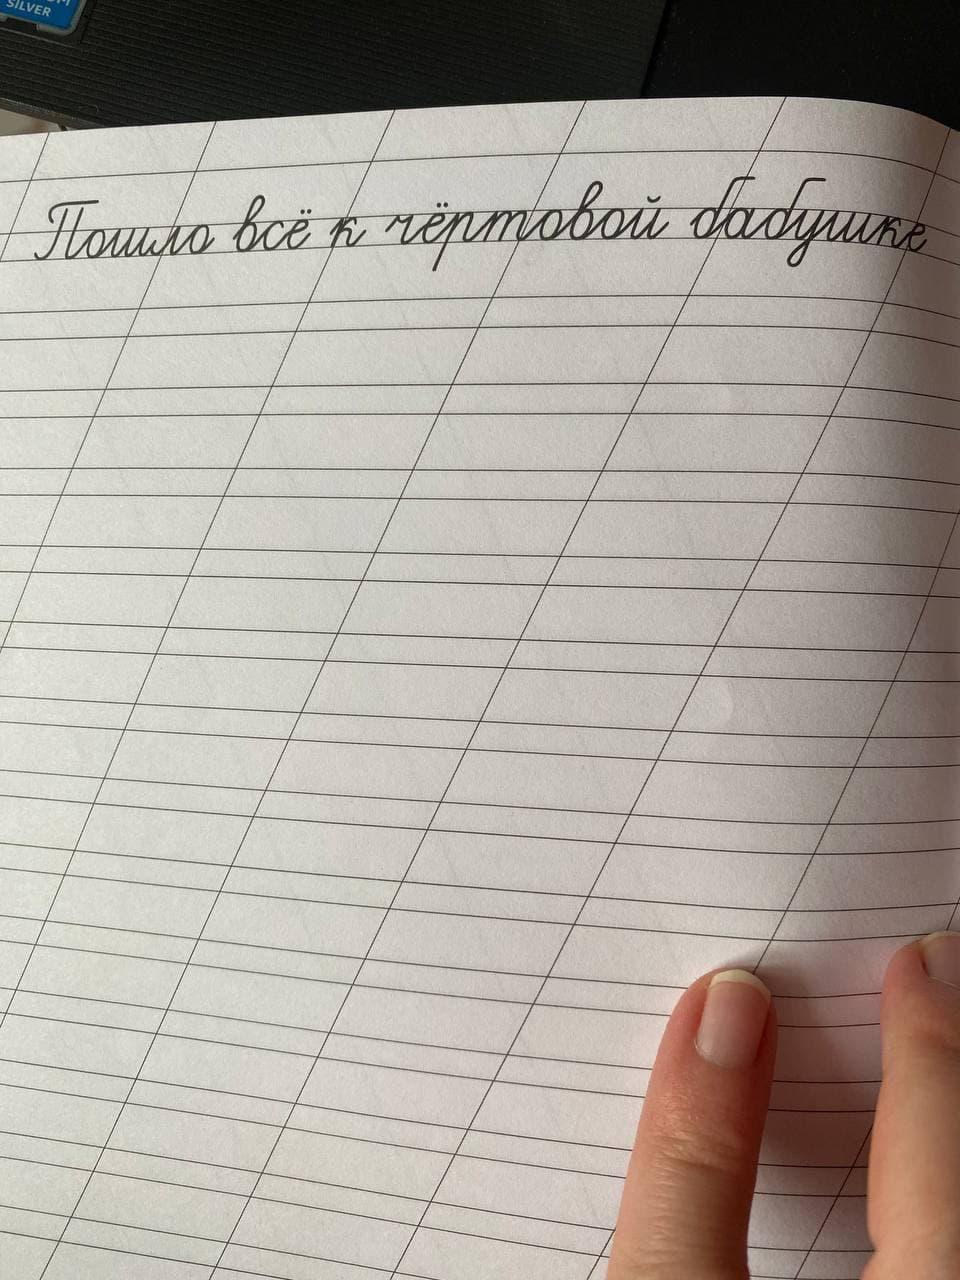 SILVER
Пошло всё к чёртовой бабушке